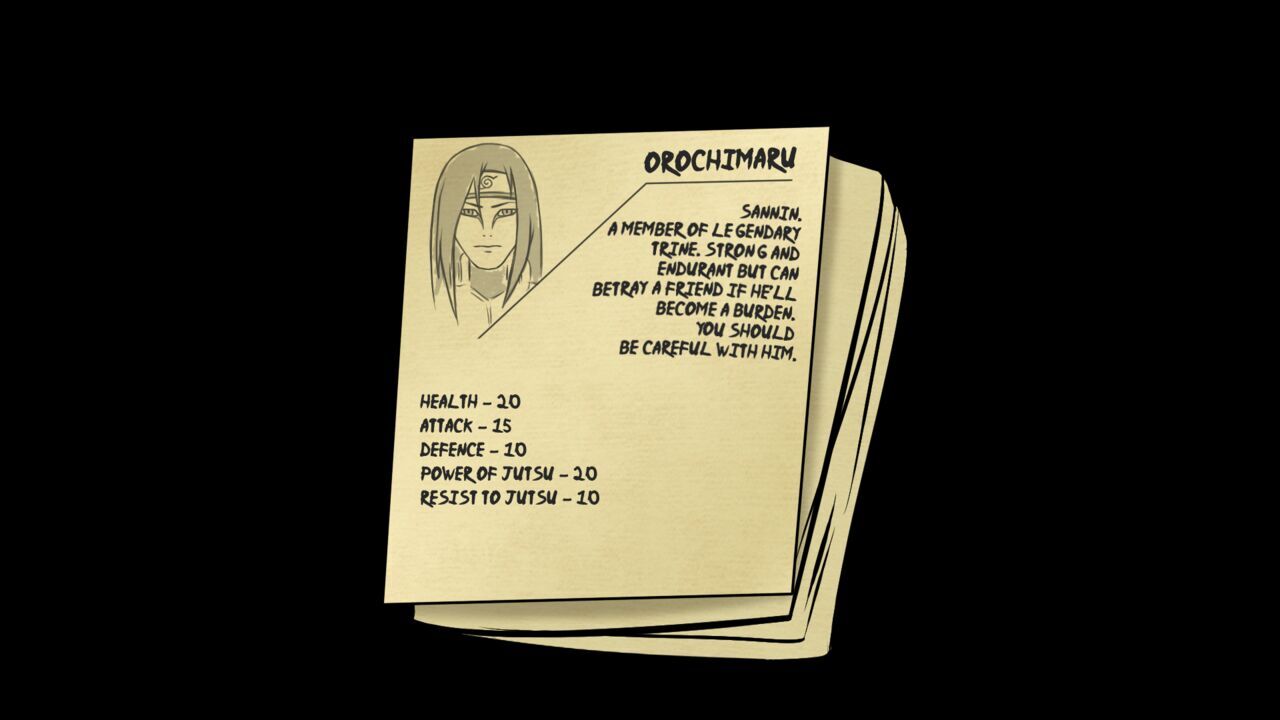 OROCHIMARU
SANNIN.
A MEMBER OF LEGENDARY
TRINE. STRONG AND
ENDURANT BUT CAN
BETRAY A FRIEND IF HE'LL
BECOME A BURDEN.
YOU SHOULD
BE CAREFUL WITH HIM.
HEALTH - 20
ATTACK - 15
DEFENCE - 10
POWER OF JUTSU - 20
RESIST TO JUTSU - 10